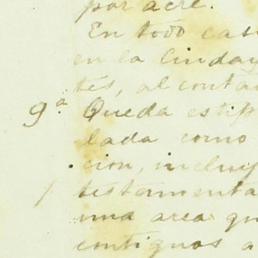 por acre.
En todo cas
en la Ciuda
tes, al conta
9ª Queda estip
lada como
cion, incluy
testamenta
una area qu
contiguos a